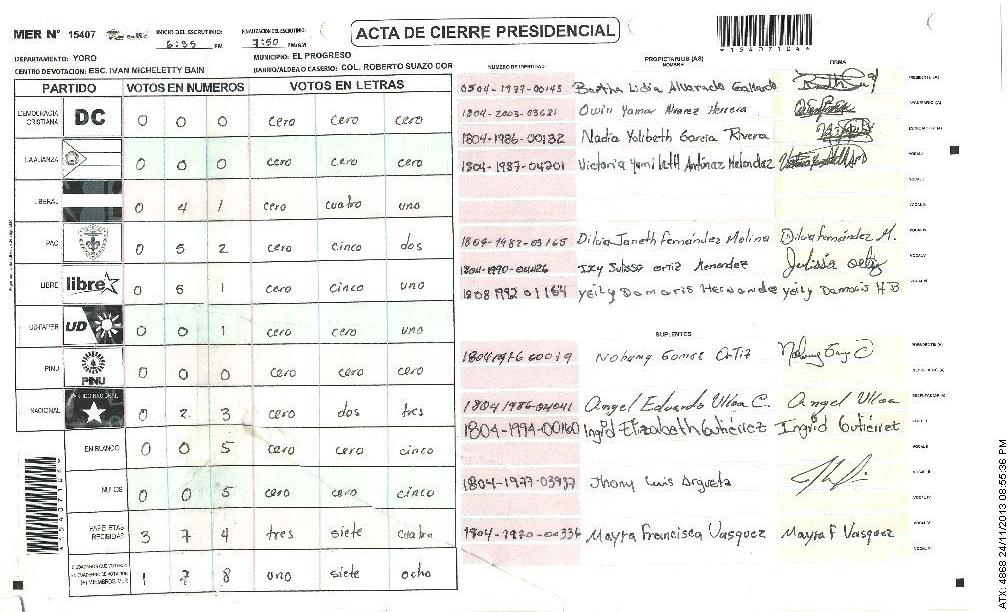 MER N° 15407
INICIO DEL ESCRUTINIO: 6:55 PM
FINALIZACION DEL ESCRUTINIO: 7:50 PM/AM
ACTA DE CIERRE PRESIDENCIAL
*15407104*
DEPARTAMENTO: YORO
MUNICIPIO: EL PROGRESO
CENTRO DE VOTACION: ESC. IVAN MICHELETTY BAIN
BARRIO/ALDEA O CASERIO: COL. ROBERTO SUAZO COR
PARTIDO VOTOS EN NUMEROS VOTOS EN LETRAS
DEMOCRACIA CRISTIANA DC 0 0 0 cero cero cero
LA ALIANZA 0 0 0 cero cero cero
LIBERAL 0 4 1 cero cuatro uno
PAC 0 5 2 cero cinco dos
LIBRE libre 0 5 1 cero cinco uno
UD-FAPER UD 0 0 1 cero cero uno
PINU PINU 0 0 0 cero cero cero
NACIONAL PARTIDO NACIONAL 0 2 3 cero dos tres
EN BLANCO 0 0 5 cero cero cinco
NULOS 0 0 5 cero cero cinco
PAPELETAS RECIBIDAS 3 7 4 tres siete cuatro
CIUDADANOS QUE VOTARON
(+) MIEMBROS MER 1 7 8 uno siete ocho
PROPIETARIOS (AS)
NUMERO DE IDENTIDAD NOMBRE FIRMA
0504-1977-00145 Bertha Lidia Alvarado Gallardo PRESIDENTE (A)
1804-2003-03681 Owin Yamar Alvarez Herrera
1804-1986-00132 Nadia Yolibeth Garcia Rivera
1804-1987-04201 Victoria Yamileth Antúnez Melendez VOCAL I
VOCAL II
VOCAL III
1804-1982-03165 Dilvia Janeth Fernández Molina Dilvia Fernández M. VOCAL IV
1804-1990-04426 Ixy Julissa Ortiz Menendez Julissa Ortiz VOCAL V
1808 1992 01164 Yeily Damaris Hernande Yeily Damaris H B VOCAL VI
SUPLENTES
1804 1976 00019 Nohemy Gomez Ortiz PRESIDENTE (A)
SECRETARIO (A)
1804 1986-04041 Angel Eduardo Ulloa C. Angel Ulloa ESCRUTADOR (A)
1804-1994-00160 Ingrid Elizabeth Gutiérrez Ingrid Gutiérrez VOCAL I
VOCAL II
1804-1977-03937 Jhony Luis Argueta VOCAL III
VOCAL IV
1804-1970-00336 Mayra Francisca Vasquez Mayra F Vasquez VOCAL V
VOCAL VI
ATX: 4868 24/11/2013 08:55:36 PM